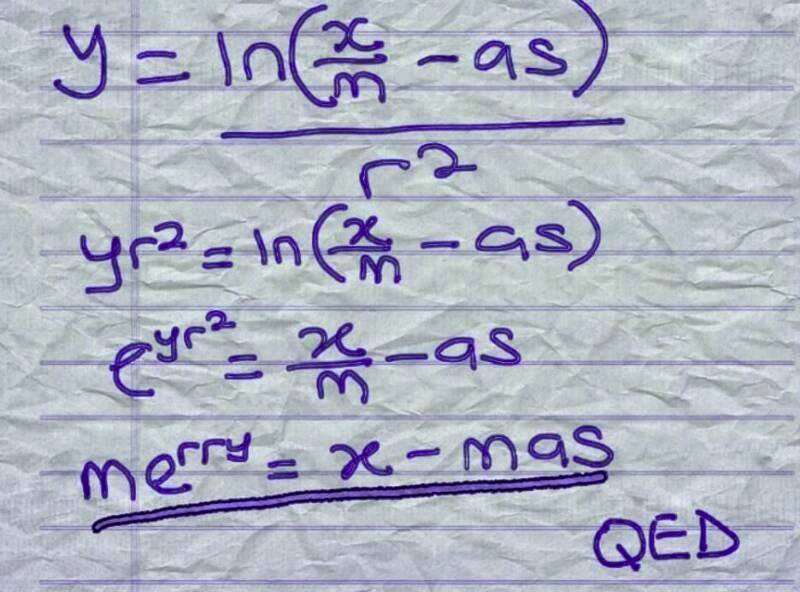 y = ln(x/m - as) / r²
yr² = ln(x/m - as)
e^yr² = x/m - as
me^rry = x - mas
QED